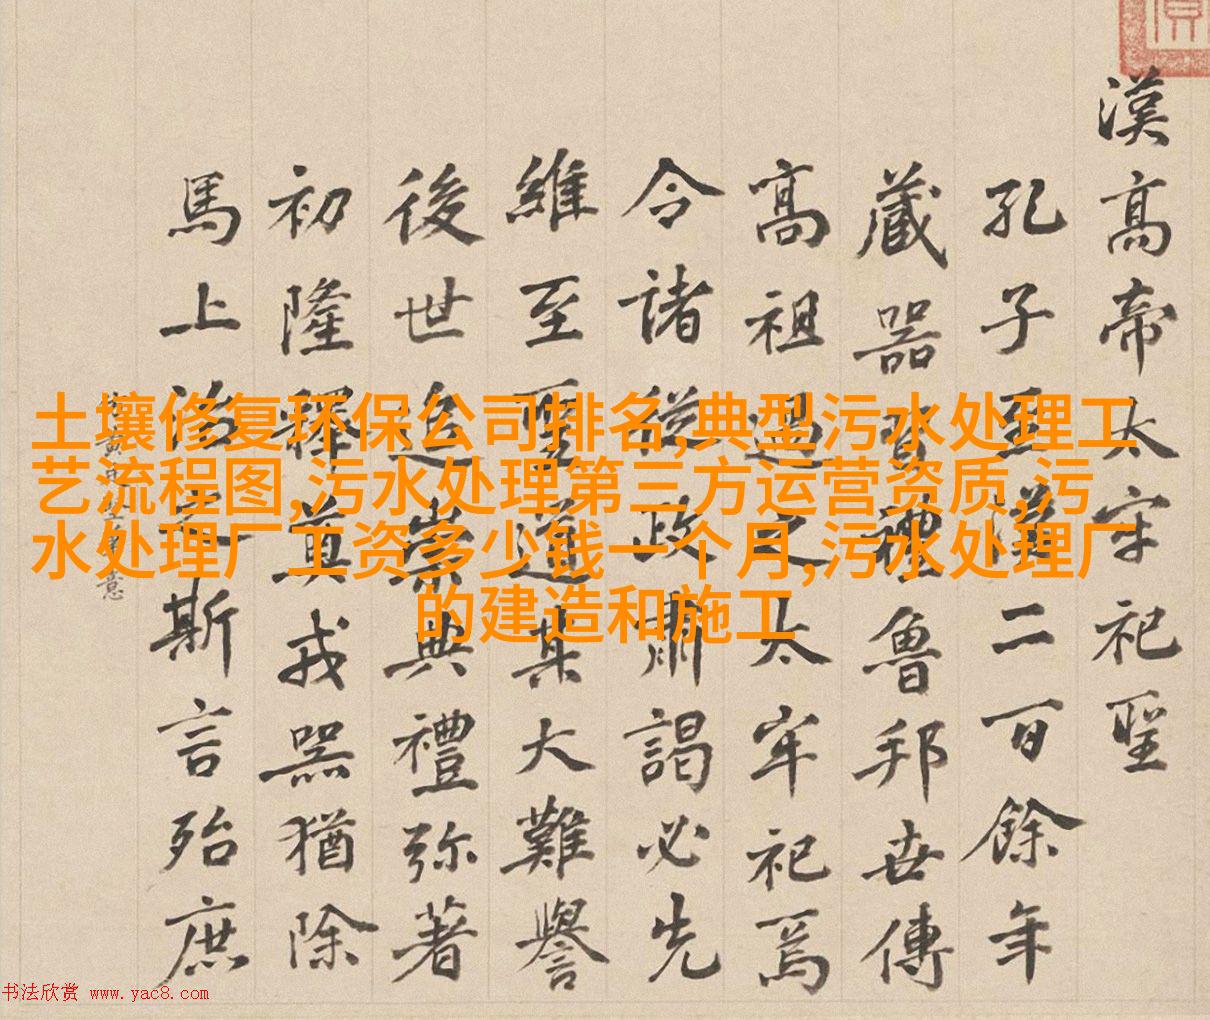 漢高帝太牢祀聖
孔子至漢二百餘年
藏器習禮魯邦世傳
高祖過之太牢祀焉
令諸從政肅謁必先
維至聖道莫大難譽
後世追崇典禮弥著
初隆釋奠戎器猶除
馬上治之斯言殆庶
土壤修复环保公司排名,典型污水处理工
艺流程图,污水处理第三方运营资质,污
水处理厂工资多少钱一个月,污水处理厂
的建造和施工
书法欣赏 www.yac8.com